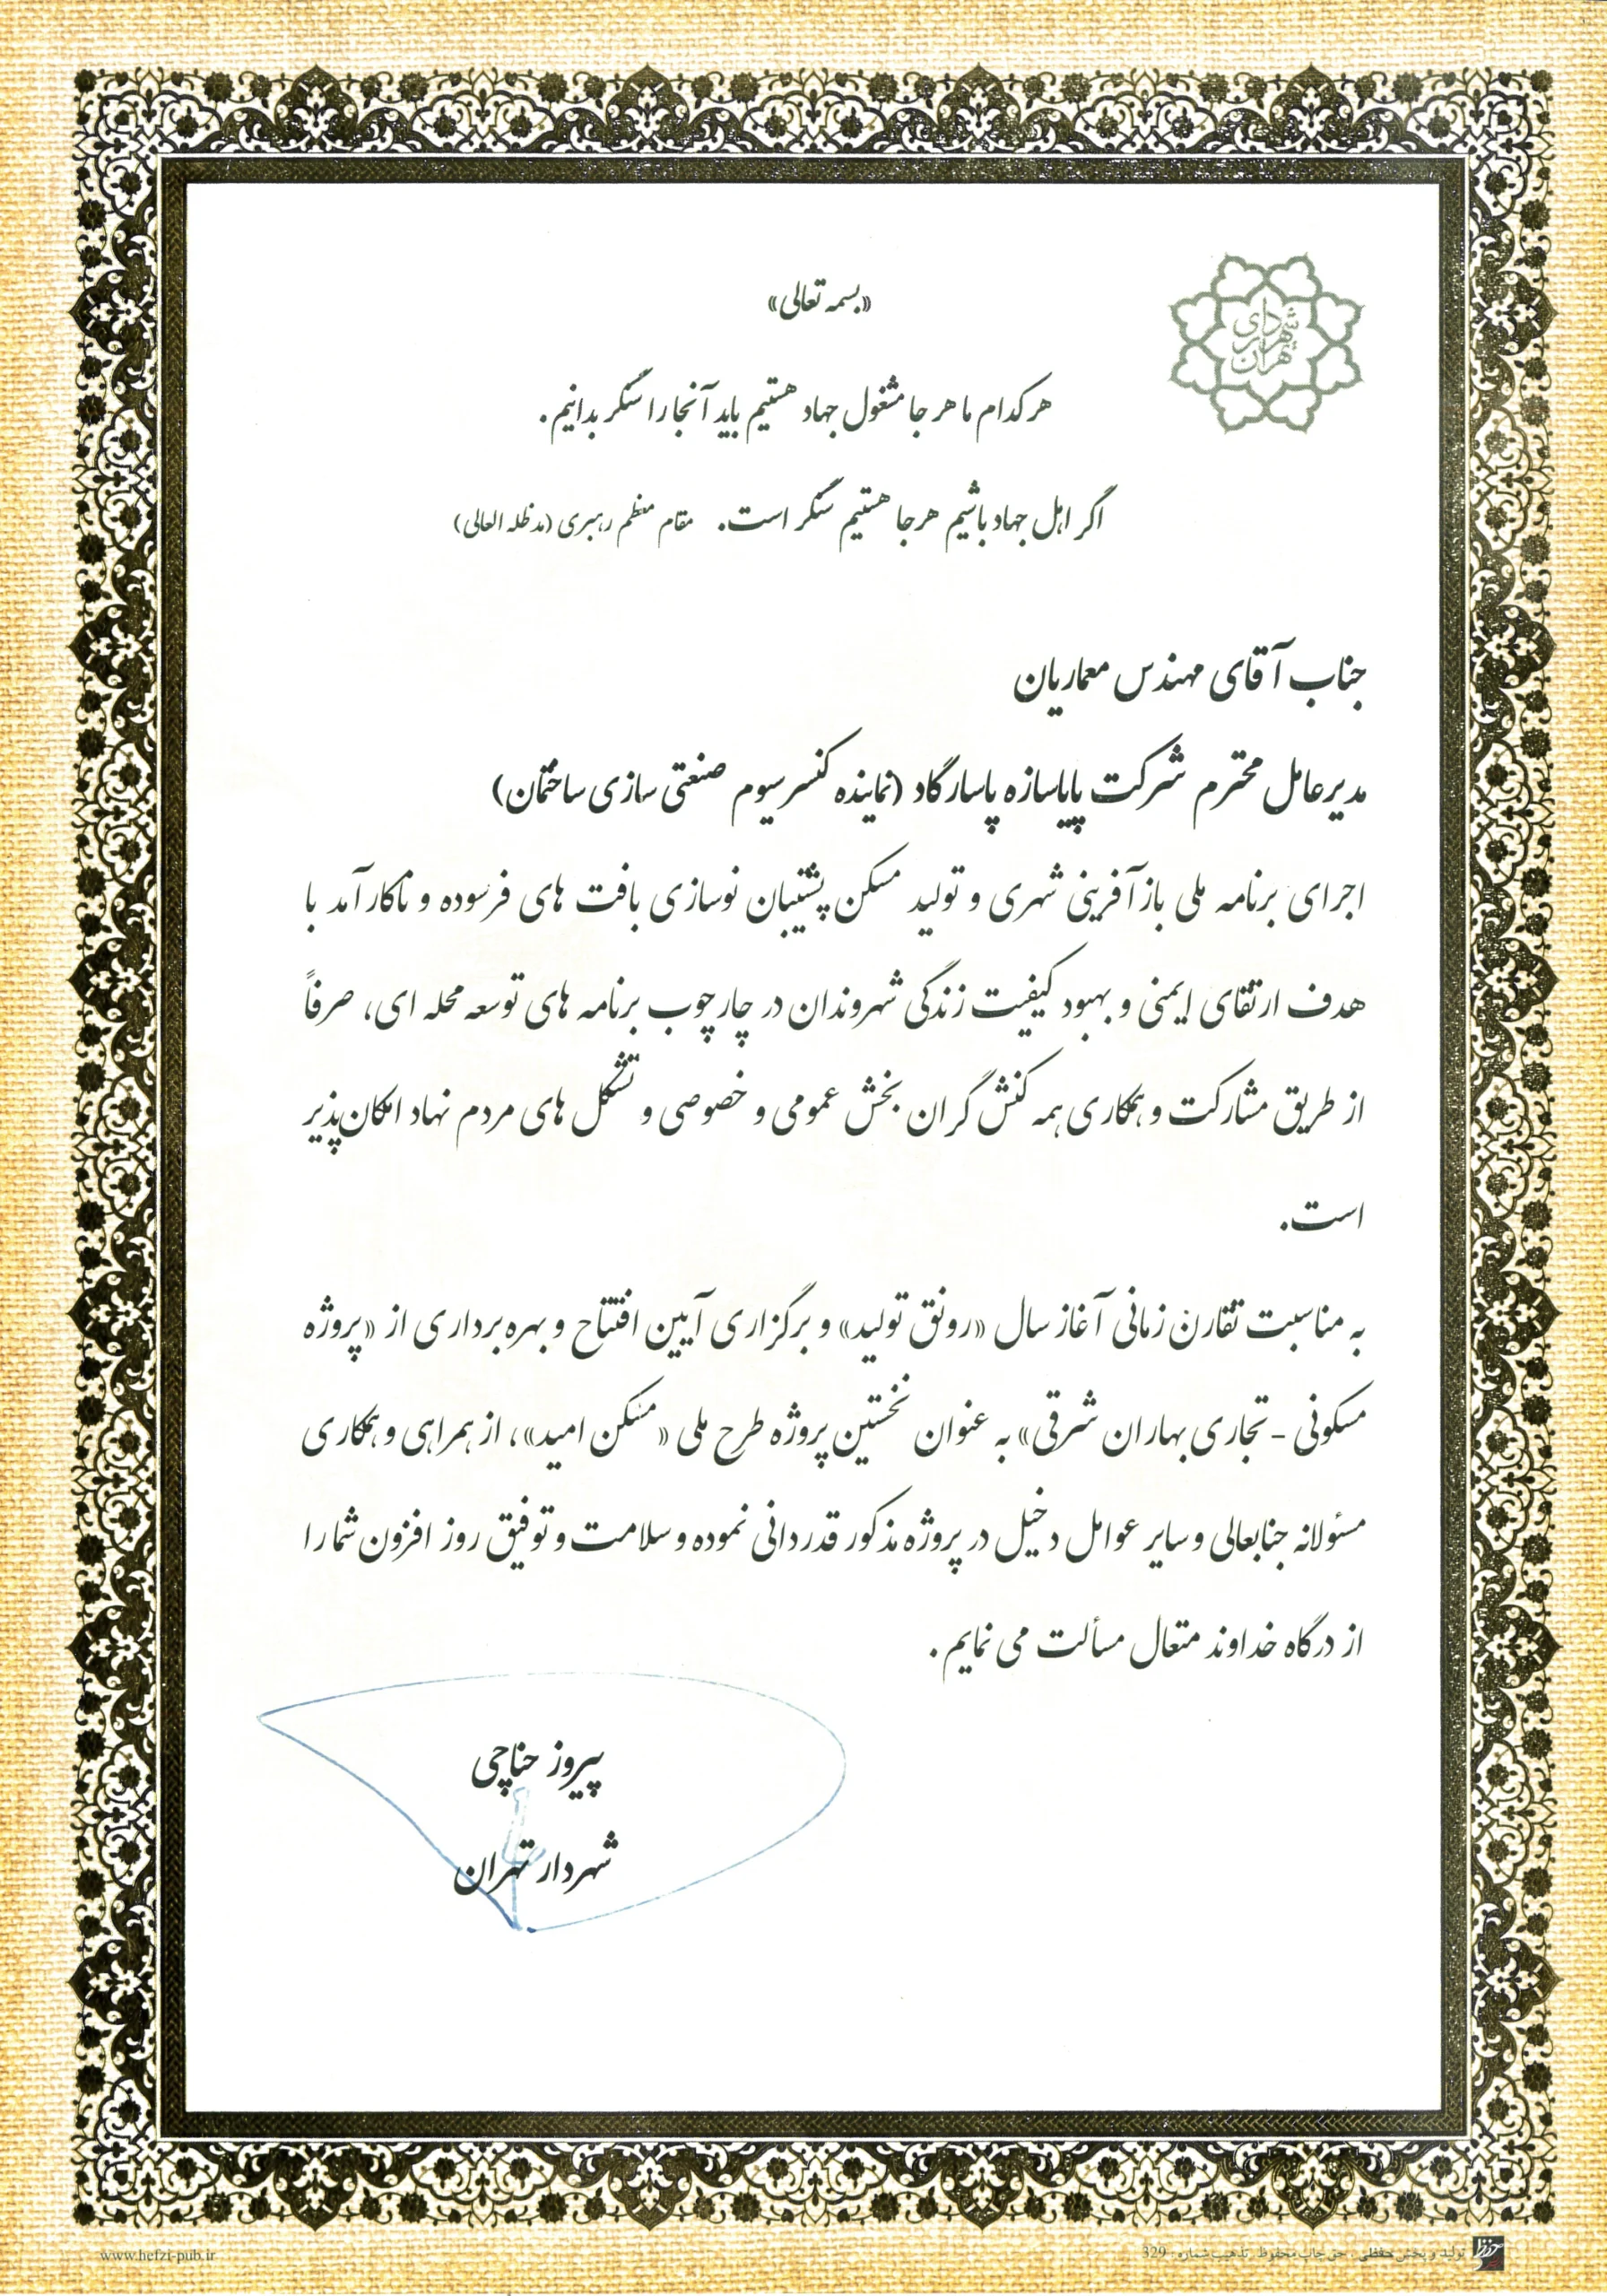 شهرداری
تهران
«بسمه تعالی»
هر کدام ما هر جا مشغول جهاد هستیم باید آنجا را سنگر بدانیم.
اگر اهل جهاد باشیم هرجا هستیم سنگر است. مقام معظم رهبری (مدظله العالی)
جناب آقای مهندس معماریان
مدیرعامل محترم شرکت پایاسازه پاسارگاد (نماینده کنسرسیوم صنعتی سازی ساختمان)
اجرای برنامه ملی بازآفرینی شهری و تولید مسکن پشتیبان نوسازی بافت های فرسوده و ناکارآمد با
هدف ارتقای ایمنی و بهبود کیفیت زندگی شهروندان در چارچوب برنامه های توسعه محله ای، صرفاً
از طریق مشارکت و همکاری همه کنش گران بخش عمومی و خصوصی و تشکل های مردم نهاد امکان پذیر
است.
به مناسبت تقارن زمانی آغاز سال «رونق تولید» و برگزاری آیین افتتاح و بهره برداری از «پروژه
مسکونی - تجاری بهاران شرقی» به عنوان نخستین پروژه طرح ملی «مسکن امید»، از همراهی و همکاری
مسئولانه جنابعالی و سایر عوامل دخیل در پروژه مذکور قدردانی نموده و سلامت و توفیق روز افزون شما را
از درگاه خداوند متعال مسألت می نمایم.
پیروز حناچی
شهردار تهران
حفظی تولید و پخش حفظی . حق چاپ محفوظ . تذهیب شماره : 329
www.hefzi-pub.ir